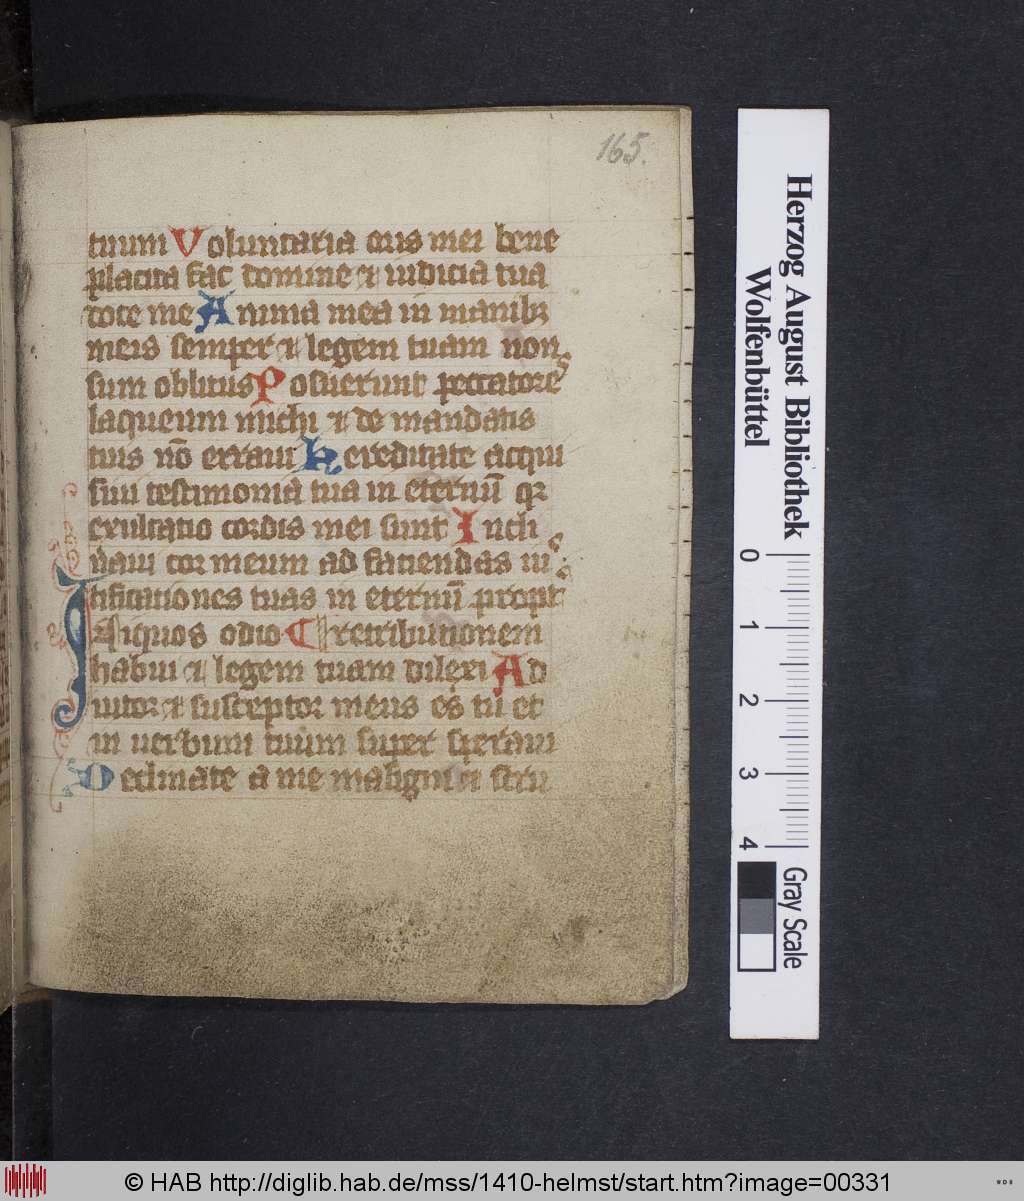 165.
tuum Voluntaria oris mei bene
placita fac domine et iudicia tua
doce me Anima mea in manibꝫ
meis semper et legem tuam non
sum oblitus Posuerunt peccatores
laqueum michi et de mandatis
tuis nō erraui Hereditate acqui
siui testimonia tua in eternū qꝛ
exultatio cordis mei sunt Incli
naui cor meum ad faciendas iu
stificationes tuas in eternū propt
Iniquos odio retributionem
habui et legem tuam dilexi Ad
iutor et susceptor meus es tu et
in uerbum tuum super speraui
Declinate a me maligni et scru
Herzog August Bibliothek
Wolfenbüttel
0 1 2 3 4
Gray Scale
© HAB http://diglib.hab.de/mss/1410-helmst/start.htm?image=00331